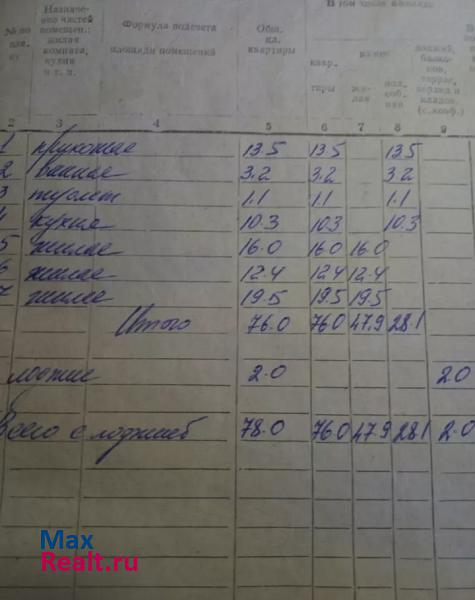 В том числе площадь
Назначе-
ние частей
помещен.:
жилая
комната,
кухня
и т. п.
Формула подсчета
площади помещений
Общ.
пл.
квартиры
квар-
тиры
жи-
лая
под-
соб-
ная
лоджий,
балко-
нов,
террас,
веранд и
кладов.
(с коэф.)
2 3 4 5 6 7 8 9
1 прихожая 13.5 13.5 13.5
2 ванная 3.2 3.2 3.2
3 туалет 1.1 1.1 1.1
4 кухня 10.3 10.3 10.3
5 жилая 16.0 16.0 16.0
6 жилая 12.4 12.4 12.4
7 жилая 19.5 19.5 19.5
Итого 76.0 76.0 47.9 28.1
лоджия 2.0 2.0
Всего с лоджией 78.0 76.0 47.9 28.1 2.0
Max
Realt.ru